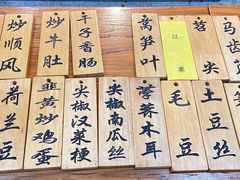 炒顺风
炒牛肚
子香肠
莴笋叶
汉菜
尖
马齿
荷兰豆
韭黄炒鸡蛋
尖椒汉菜梗
尖椒南瓜丝
木耳
毛豆
土豆丝
豆